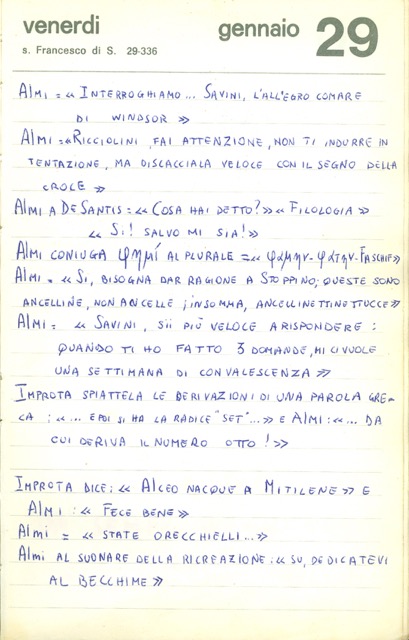 venerdi gennaio 29
s. Francesco di S. 29-336
Almi = « Interroghiamo... Savini, l'allegro comare
di Windsor »
Almi = « Ricciolini, fai attenzione, non ti indurre in
tentazione, ma discacciala veloce con il segno della
croce »
Almi a De Santis = « Cosa hai detto? » « Filologia »
« Si! Salvo mi sia! »
Almi coniuga φημί al plurale = « φαμην - φατην - Faschie »
Almi = « Si, bisogna dar ragione a Stoppino; queste sono
ancelline, non ancelle; insomma, ancellinettinettucce »
Almi = « Savini, sii più veloce a rispondere:
quando ti ho fatto 3 domande, mi ci vuole
una settimana di convalescenza »
Improta spiattela le derivazioni di una parola gre-
ca: « ... e poi si ha la radice "set"... » e Almi: « ... da
cui deriva il numero otto! »
Improta dice: « Alceo nacque a Mitilene » e
Almi: « Fece bene »
Almi = « State orecchielli... »
Almi al suonare della ricreazione: « Su, dedicatevi
al becchime »